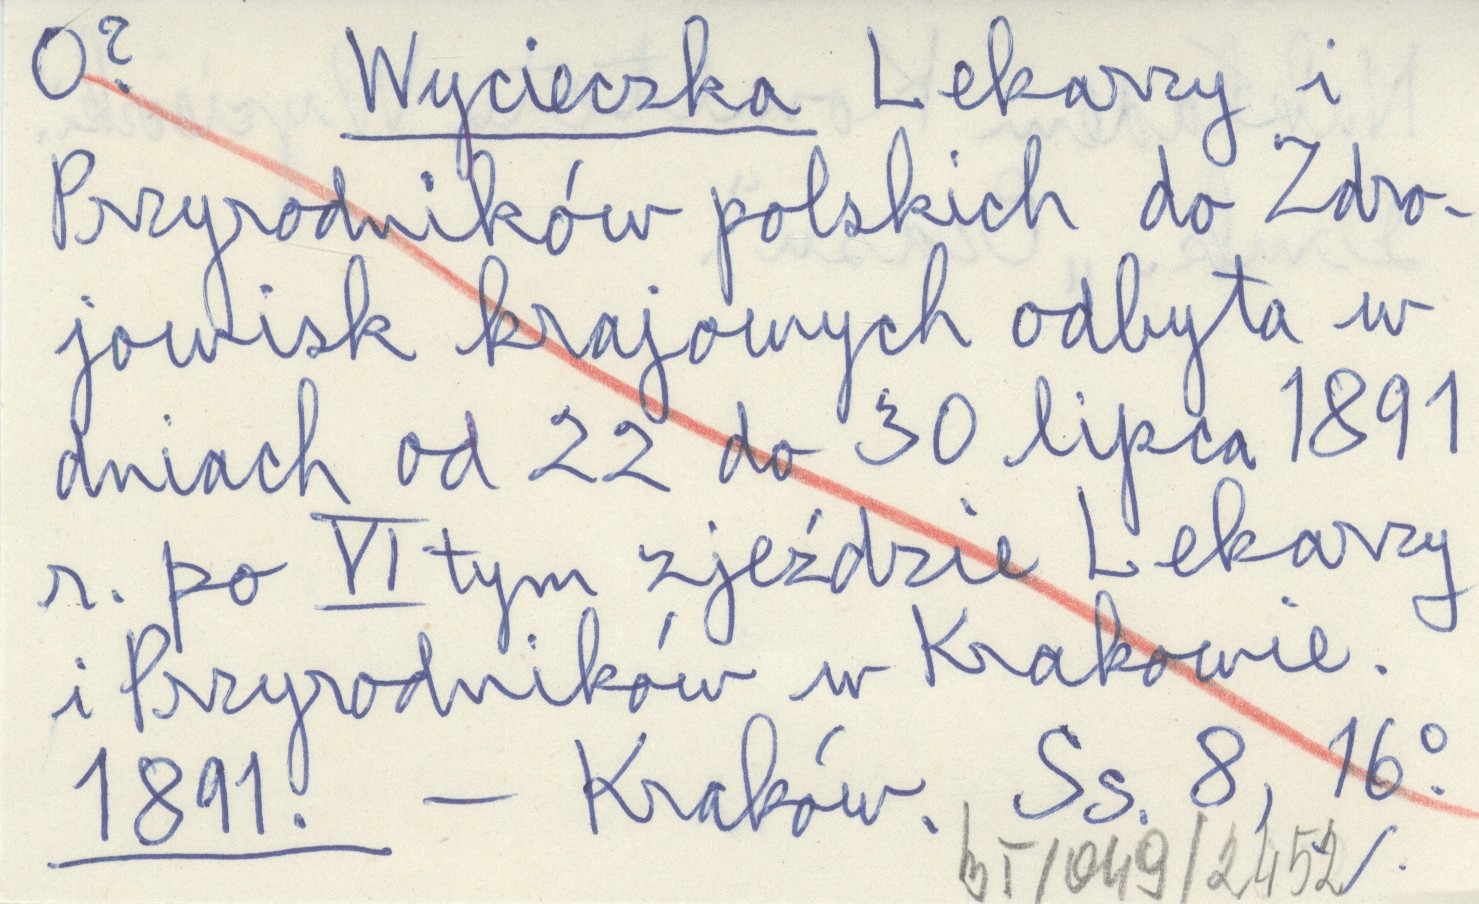 O? Wycieczka Lekarzy i
Przyrodników polskich do Zdro-
jowisk krajowych odbyta w
dniach od 22 do 30 lipca 1891
r. po VI tym zjeździe Lekarzy
i Przyrodników w Krakowie.
1891. — Kraków. Ss. 8, 16°.
/049/2452/.